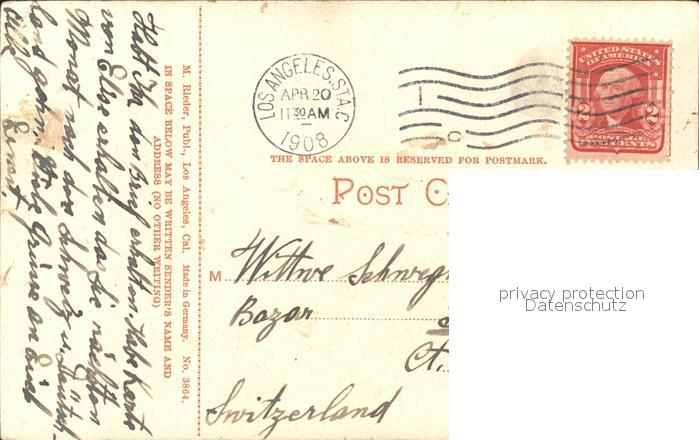 Habt Ihr den Brief erhalten. Habe Karte
von Else erhalten das sie nächsten
Monat nach der Schweiz u. Deutsch-
land geht. Viele Grüsse an Euch
alle
Ernest
M. Rieder, Publ., Los Angeles, Cal. Made in Germany. No. 3864.
IN SPACE BELOW MAY BE WRITTEN SENDER'S NAME AND
ADDRESS (NO OTHER WRITING)
LOS ANGELES, STA. C
APR 20
11 30 AM
1908
UNITED STATES
OF AMERICA
2 2
POSTAGE
CENTS
THE SPACE ABOVE IS RESERVED FOR POSTMARK.
POST C
M Wittwe Schweg
Bazar
Ct.
Switzerland
privacy protection
Datenschutz